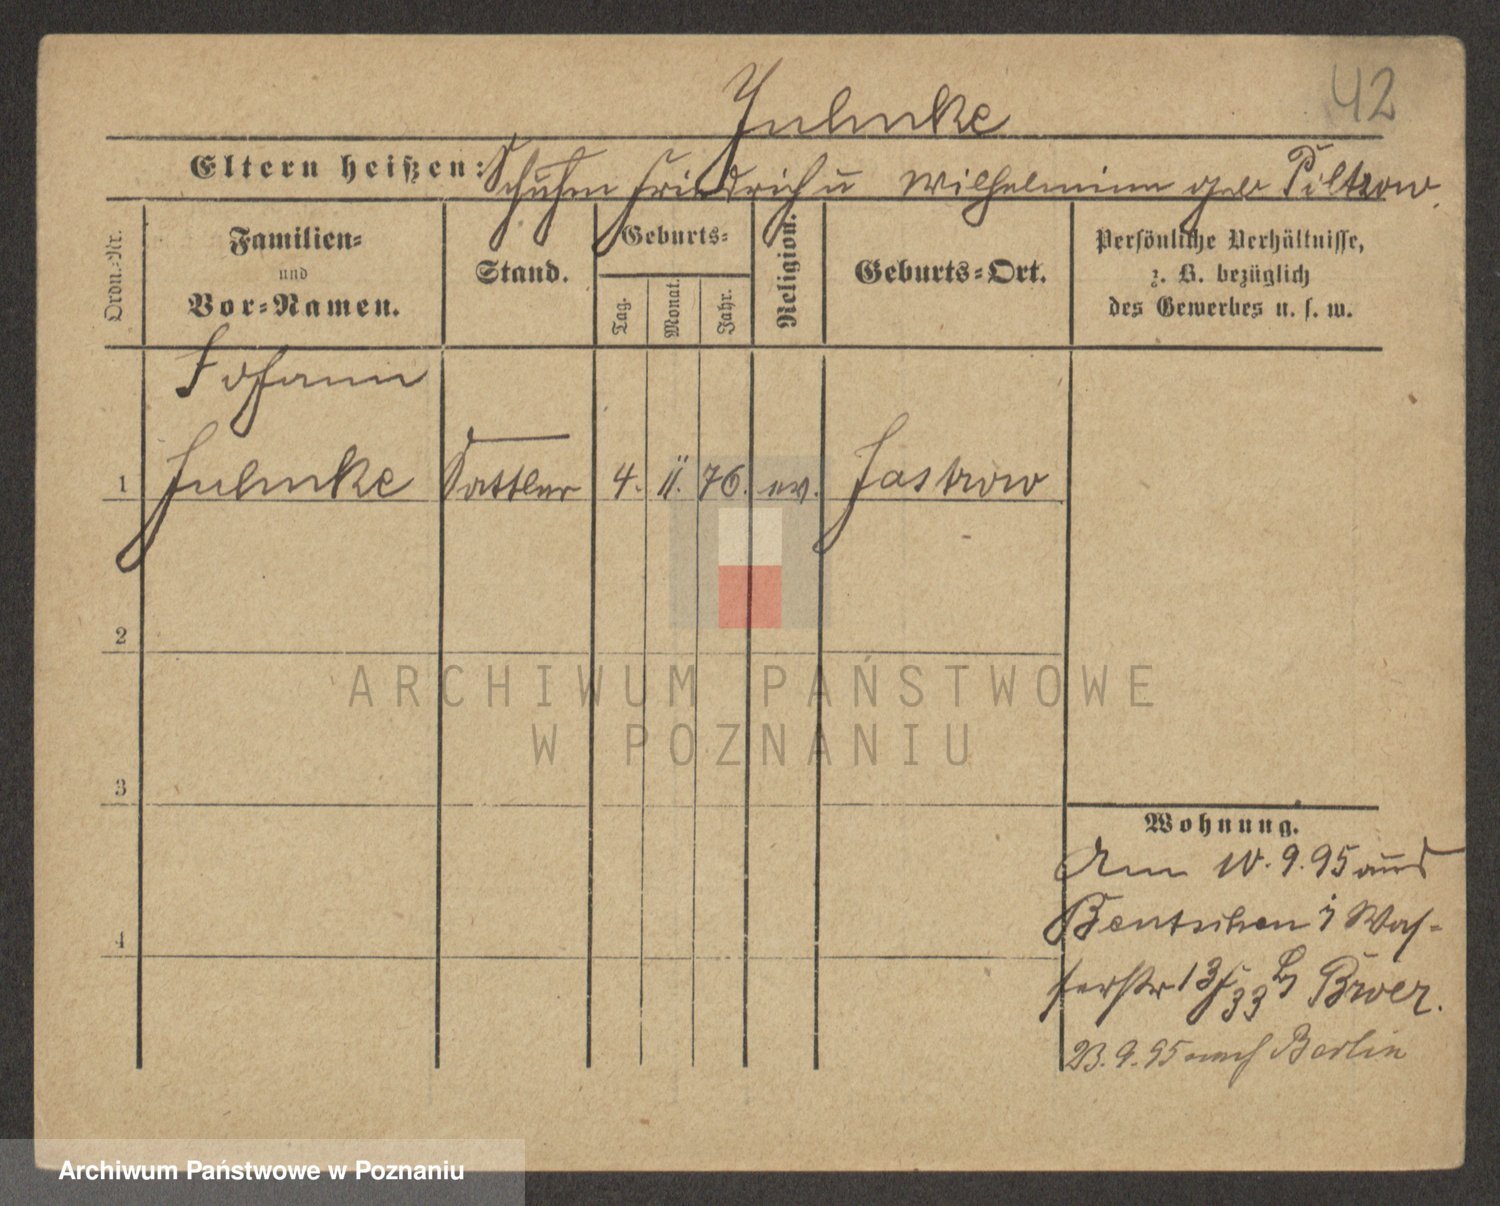 42
Julmke
Eltern heißen: Schuhm Friedrich u Wilhelmine geb Piltzow.
Ordn.-Nr.
Familien-
und
Vor-Namen.
Stand.
Geburts-
Tag.
Monat.
Jahr.
Religion.
Geburts-Ort.
Persönliche Verhältnisse,
z. B. bezüglich
des Gewerbes u. s. w.
Johann
1 Julmke Sattler 4. 11. 76. ev. Jastrow
2
3
4
Wohnung.
Am 10.9.95 aus
Bentschen Was-
serstr 13/33 Bwer.
23.9.95 nach Berlin
ARCHIWUM PAŃSTWOWE
W POZNANIU
Archiwum Państwowe w Poznaniu